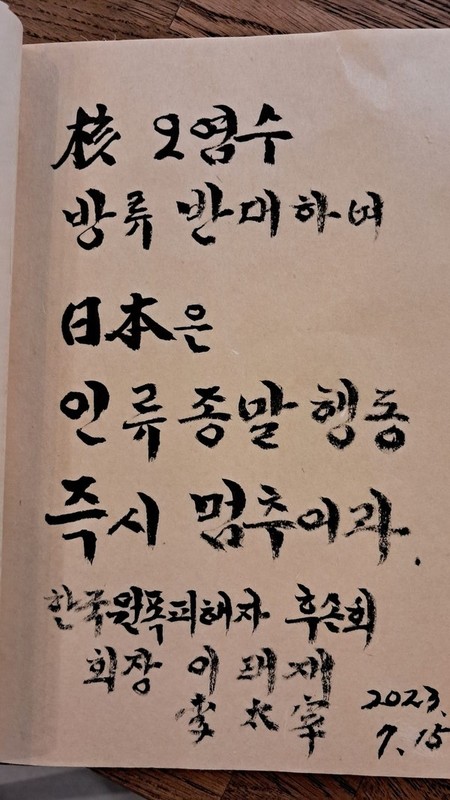 核 오염수
방류 반대하며
日本은
인류종말 행동
즉시 멈추어라.
한국원폭피해자 후손회
회장 이태재
李太宰
2023.
7.15